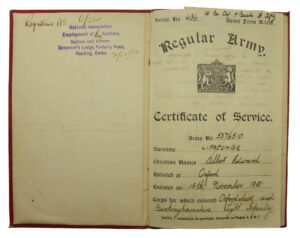 National Association
Employment of Soldiers,
Sailors and Airmen
Governor's Lodge, Forbury Road,
Reading, Berks.
Serial No. 436
Army Form
Regular Army.
Certificate of Service.
Army No. 5376510
Surname LIPSCOMBE
Christian Names Albert Edward
Enlisted at Oxford
Enlisted on 15th November 1921
Corps for which enlisted Oxfordshire and
Buckinghamshire Light Infantry